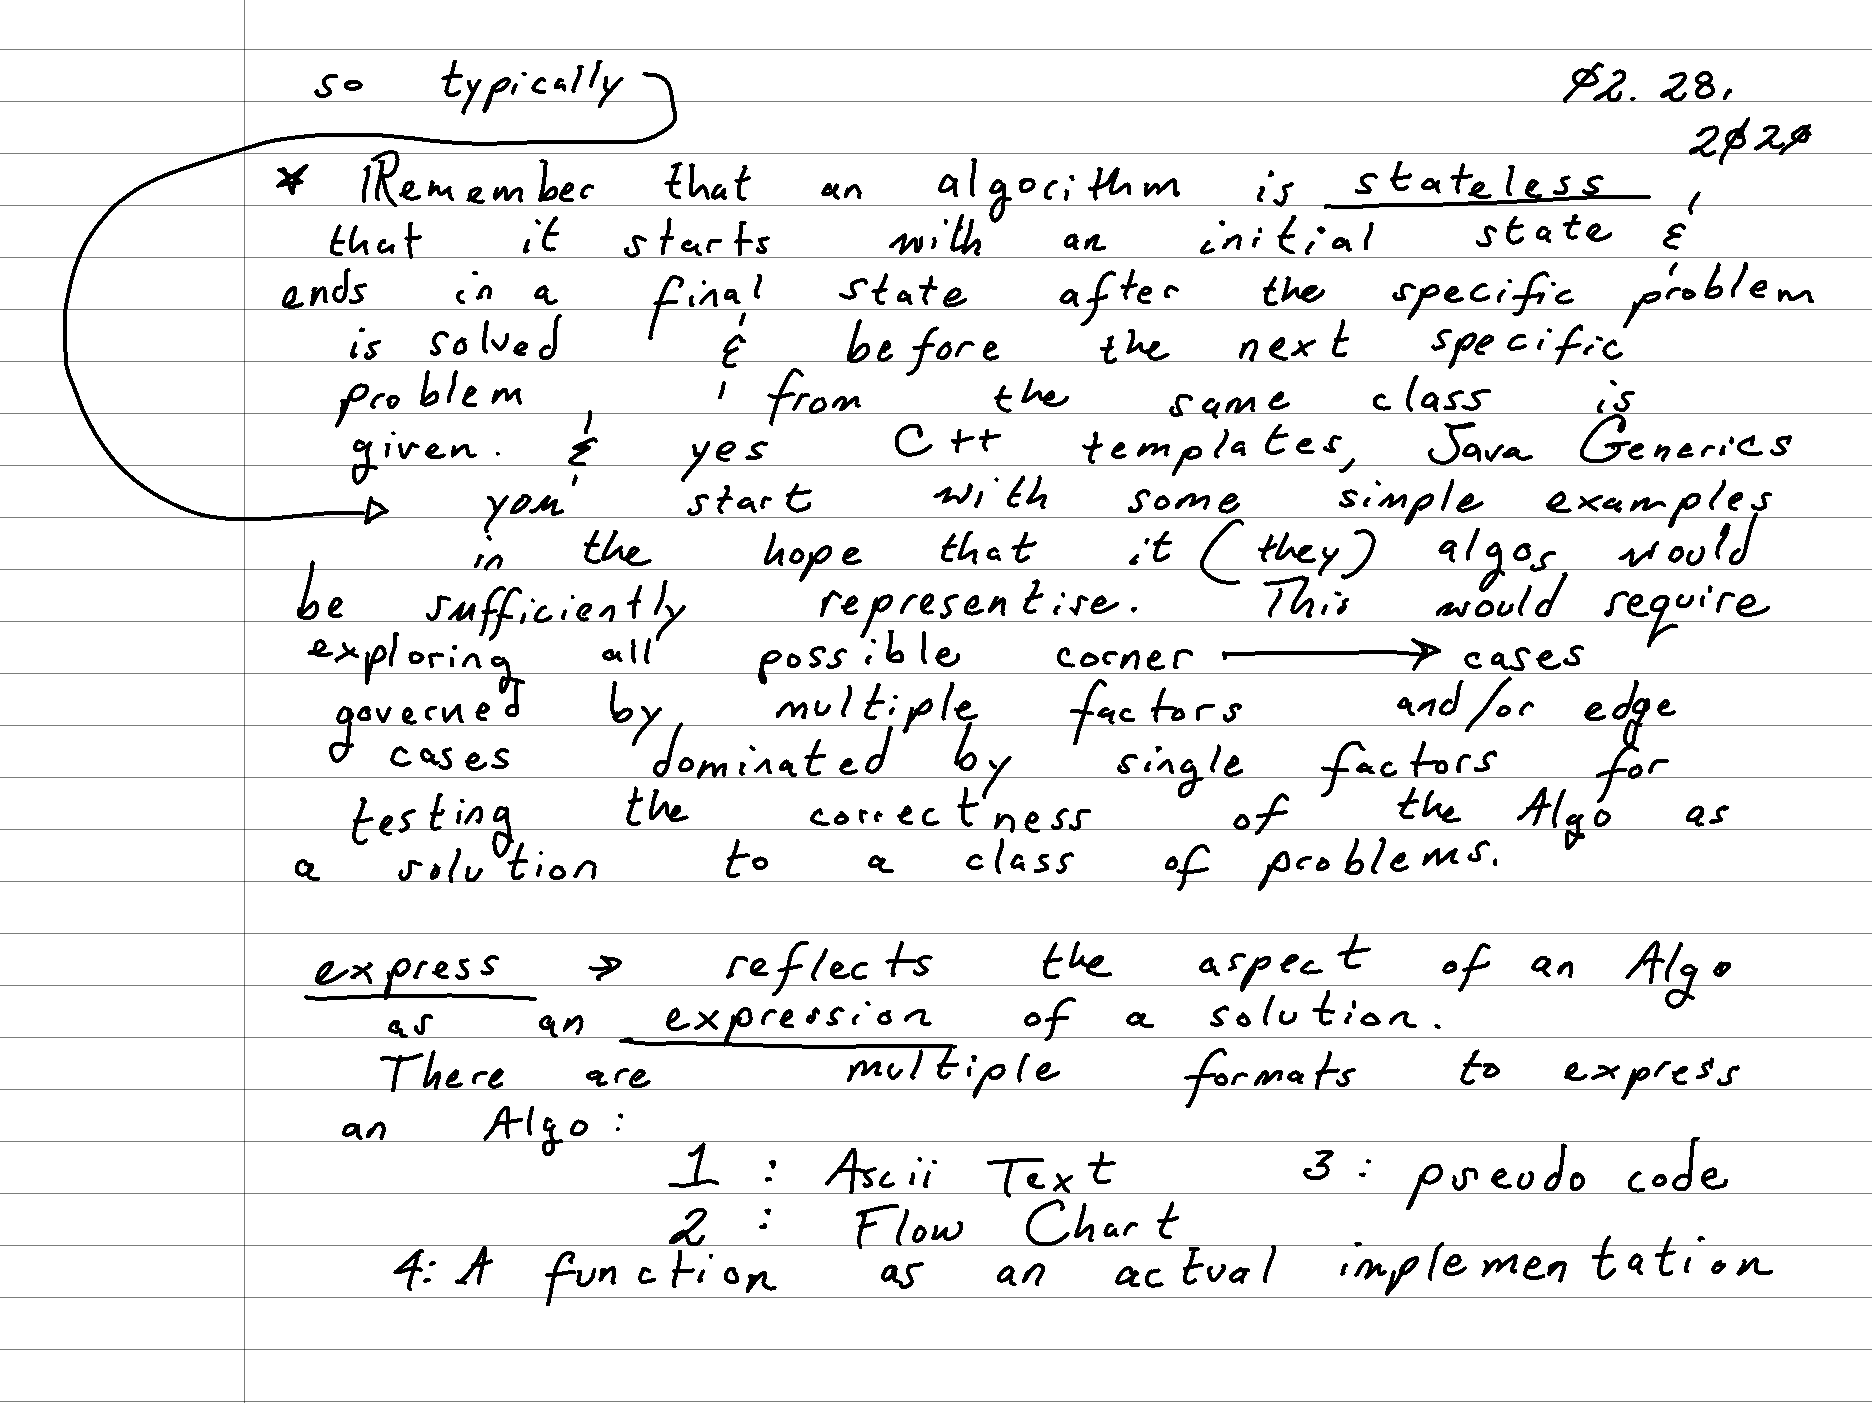 so typically
02. 28,
2020
* Remember that an algorithm is stateless
that it starts with an initial state &
ends in a final state after the specific problem
is solved & before the next specific
problem from the same class is
given. & yes C++ templates, Java Generics
→ you start with some simple examples
in the hope that it (they) algos would
be sufficiently representise. This would require
exploring all possible corner → cases
governed by multiple factors and/or edge
cases dominated by single factors for
testing the correctness of the Algo as
a solution to a class of problems.
express → reflects the aspect of an Algo
as an expression of a solution.
There are multiple formats to express
an Algo:
1 : Ascii Text 3 : pseudo code
2 : Flow Chart
4: A function as an actual implementation